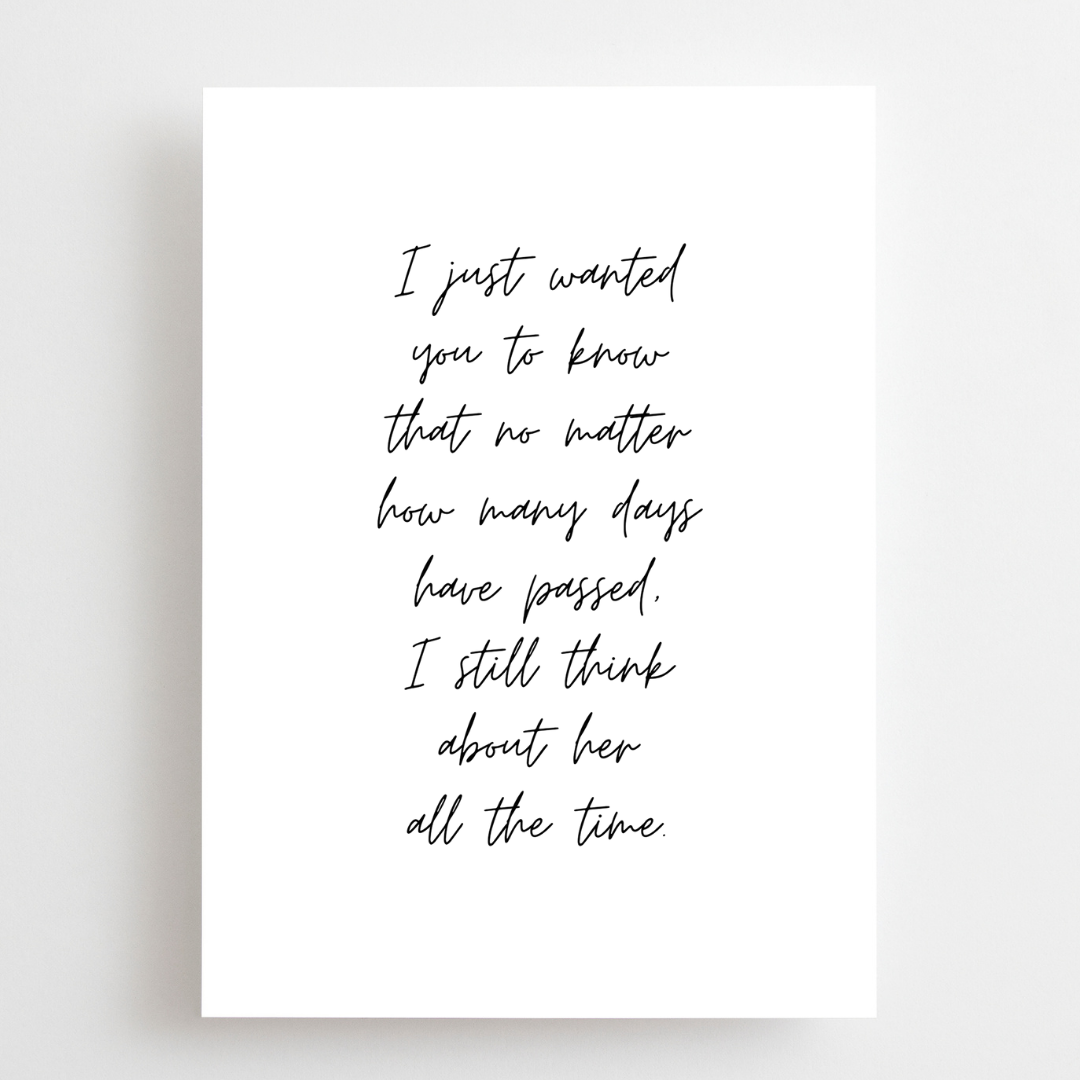 I just wanted
you to know
that no matter
how many days
have passed,
I still think
about her
all the time.